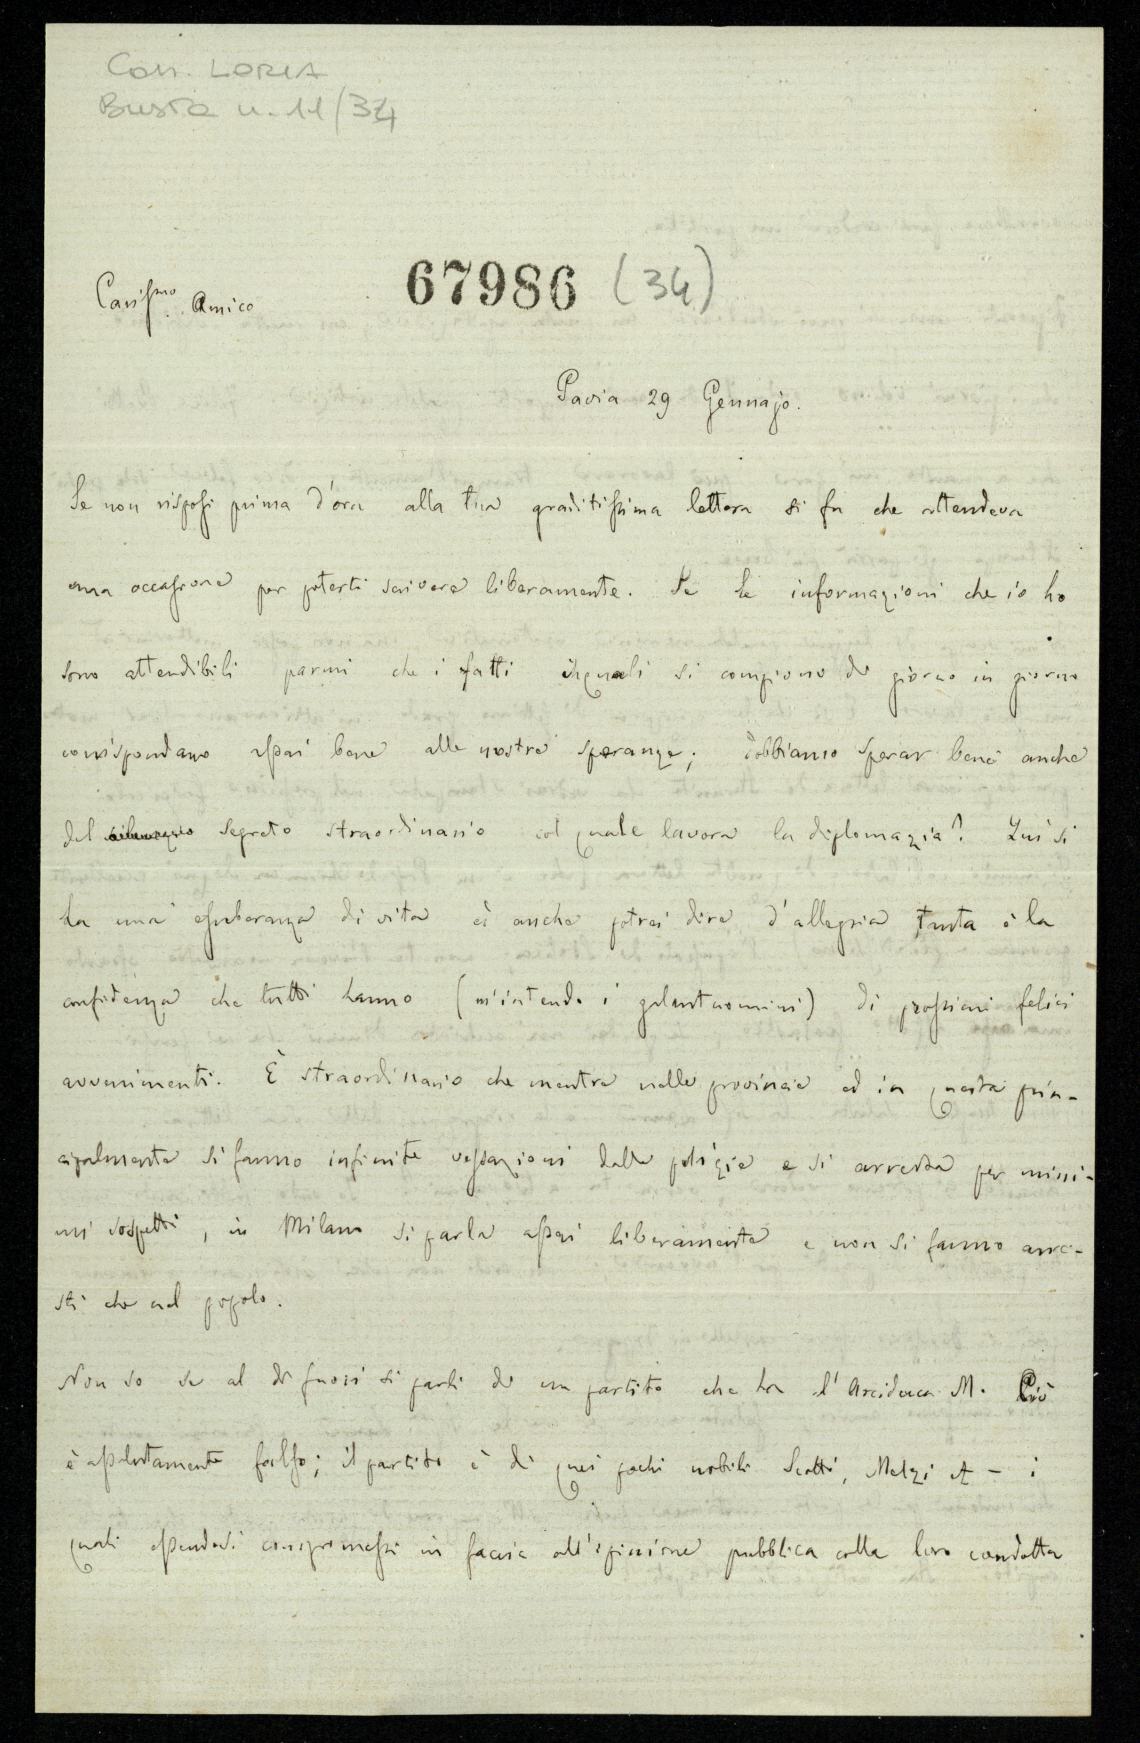 Corr. LORIA
Busta n. 11/34
67986 (34)
Cariss.mo Amico
Pavia 29 Gennajo.
Se non risposi prima d'ora alla tua graditissima lettera si fu che attendeva
una occasione per poterti scrivere liberamente. Se le informazioni che io ho
sono attendibili parmi che i fatti i quali si compiono di giorno in giorno
corrispondano assai bene alle nostre speranze; dobbiamo sperar bene anche
del segreto straordinario col quale lavora la diplomazia? Qui si
ha una esuberanza di vita ed anche potrei dire d'allegria tanta è la
confidenza che tutti hanno (m'intendo i galantuomini) di prossimi felici
avvenimenti. È straordinario che mentre nelle provincie ed in questa prin-
cipalmente si fanno infinite vessazioni dalla polizia e si arresta per mini-
mi sospetti, in Milano si parla assai liberamente e non si fanno arre-
sti che nel popolo.
Non so se al di fuori si parli di un partito che ha l'Arciduca M. Ciò
è assolutamente falso; il partito è di quei pochi nobili Scotti, Melzi et - i
quali essendosi compromessi in faccia all'opinione pubblica colla loro condotta